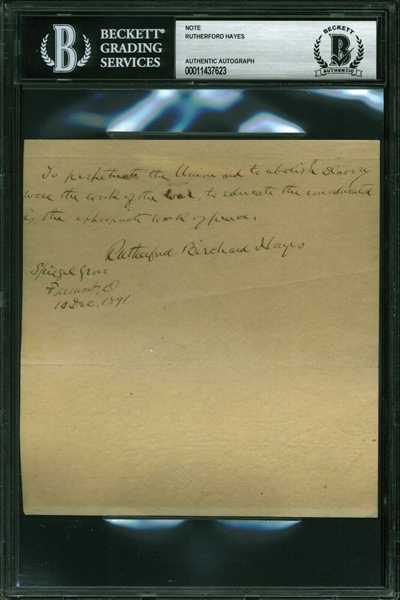 BECKETT®
GRADING
SERVICES
NOTE
RUTHERFORD HAYES
AUTHENTIC AUTOGRAPH
00011437623
BECKETT
B
AUTHENTIC
To perpetuate the Union and to abolish slavery
were the work of the war, to educate the uneducated
is the appropriate work of peace.
Rutherford Birchard Hayes
Spiegel Grove
Fremont, O
10 Dec, 1891